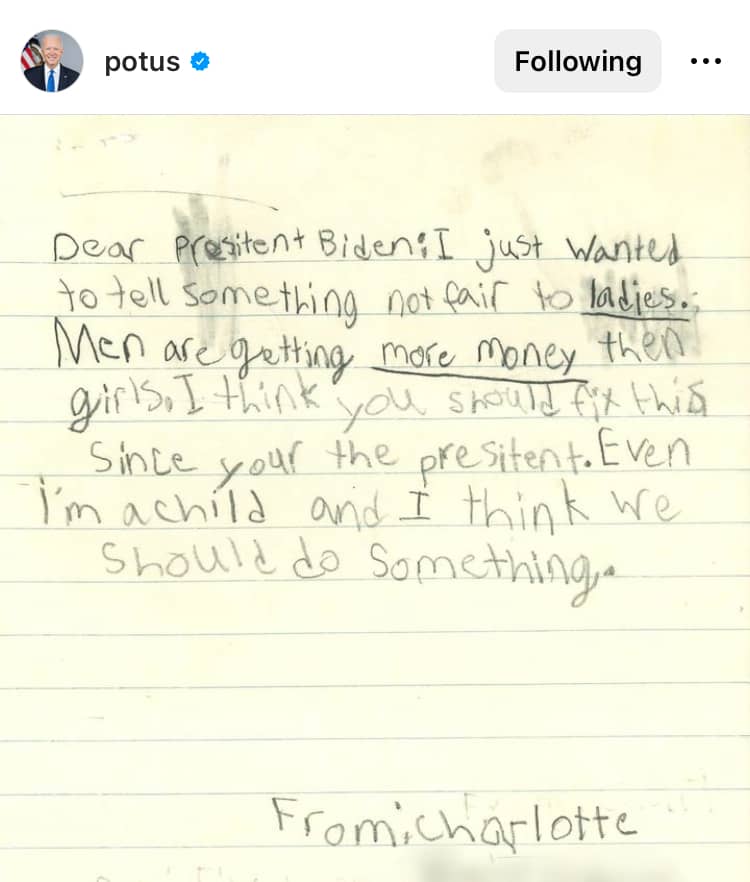 potus
Following
Dear Presitent Biden: I just wanted
to tell something not fair to ladies.
Men are getting more money then
girls. I think you should fix this
Since your the presitent. Even
I'm a child and I think we
should do something.
From: charlotte